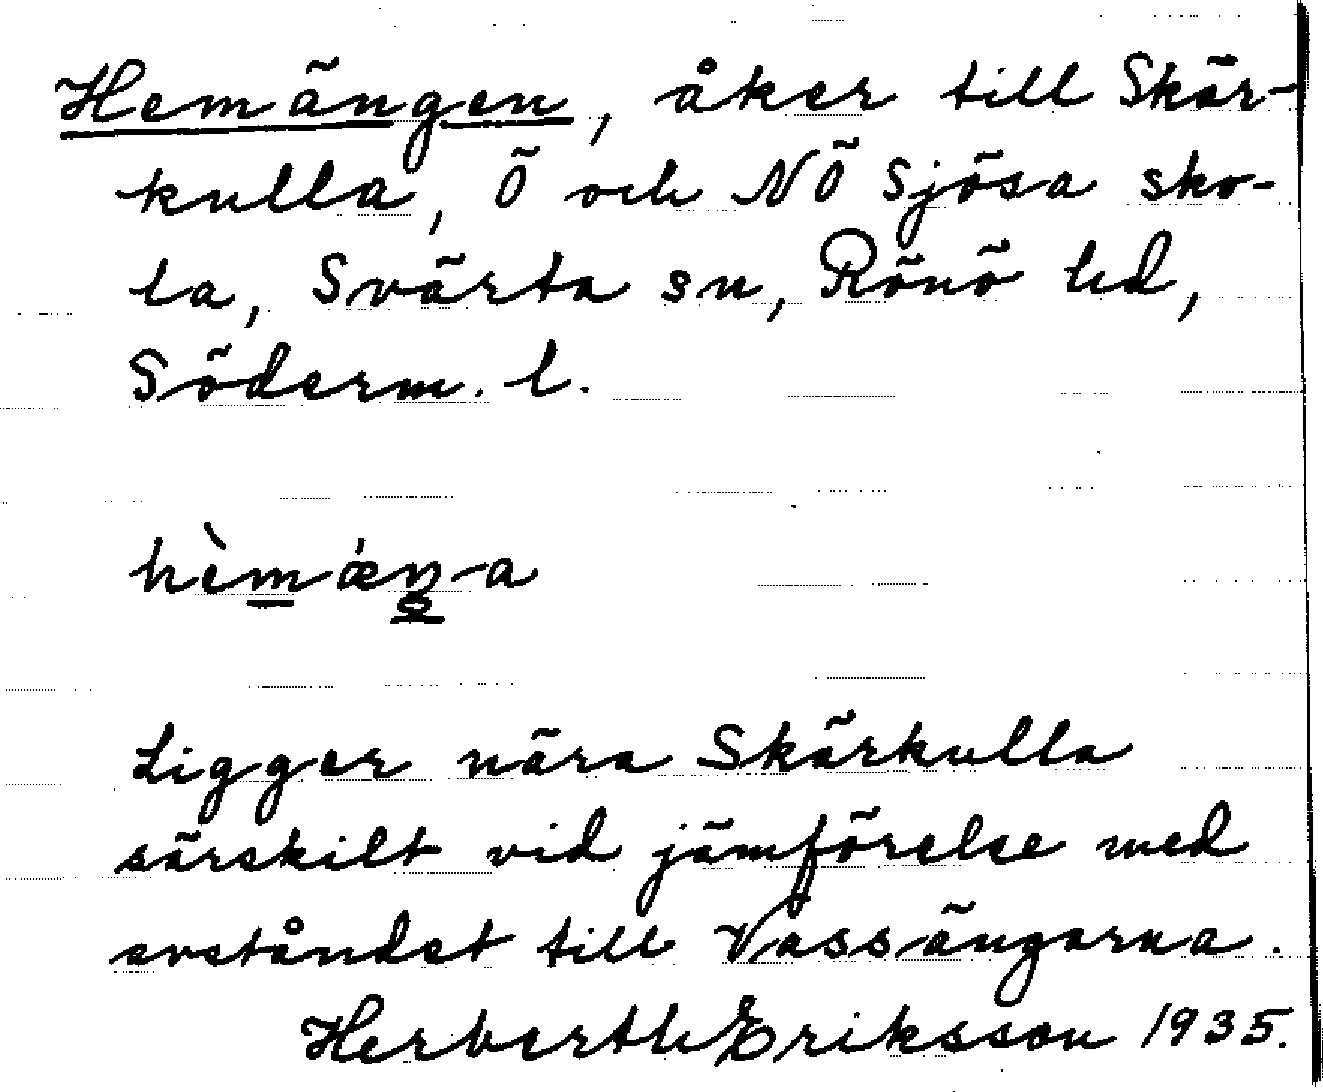 Hemängen, åker till Skär-
kulla, Ö och NÖ Sjösa sko-
la, Svärta sn, Rönö hd,
Söderm. l.
hèmǽŋ-a
Ligger nära Skärkulla
särskilt vid jämförelse med
avståndet till Vassängarna.
Herberth Eriksson 1935.